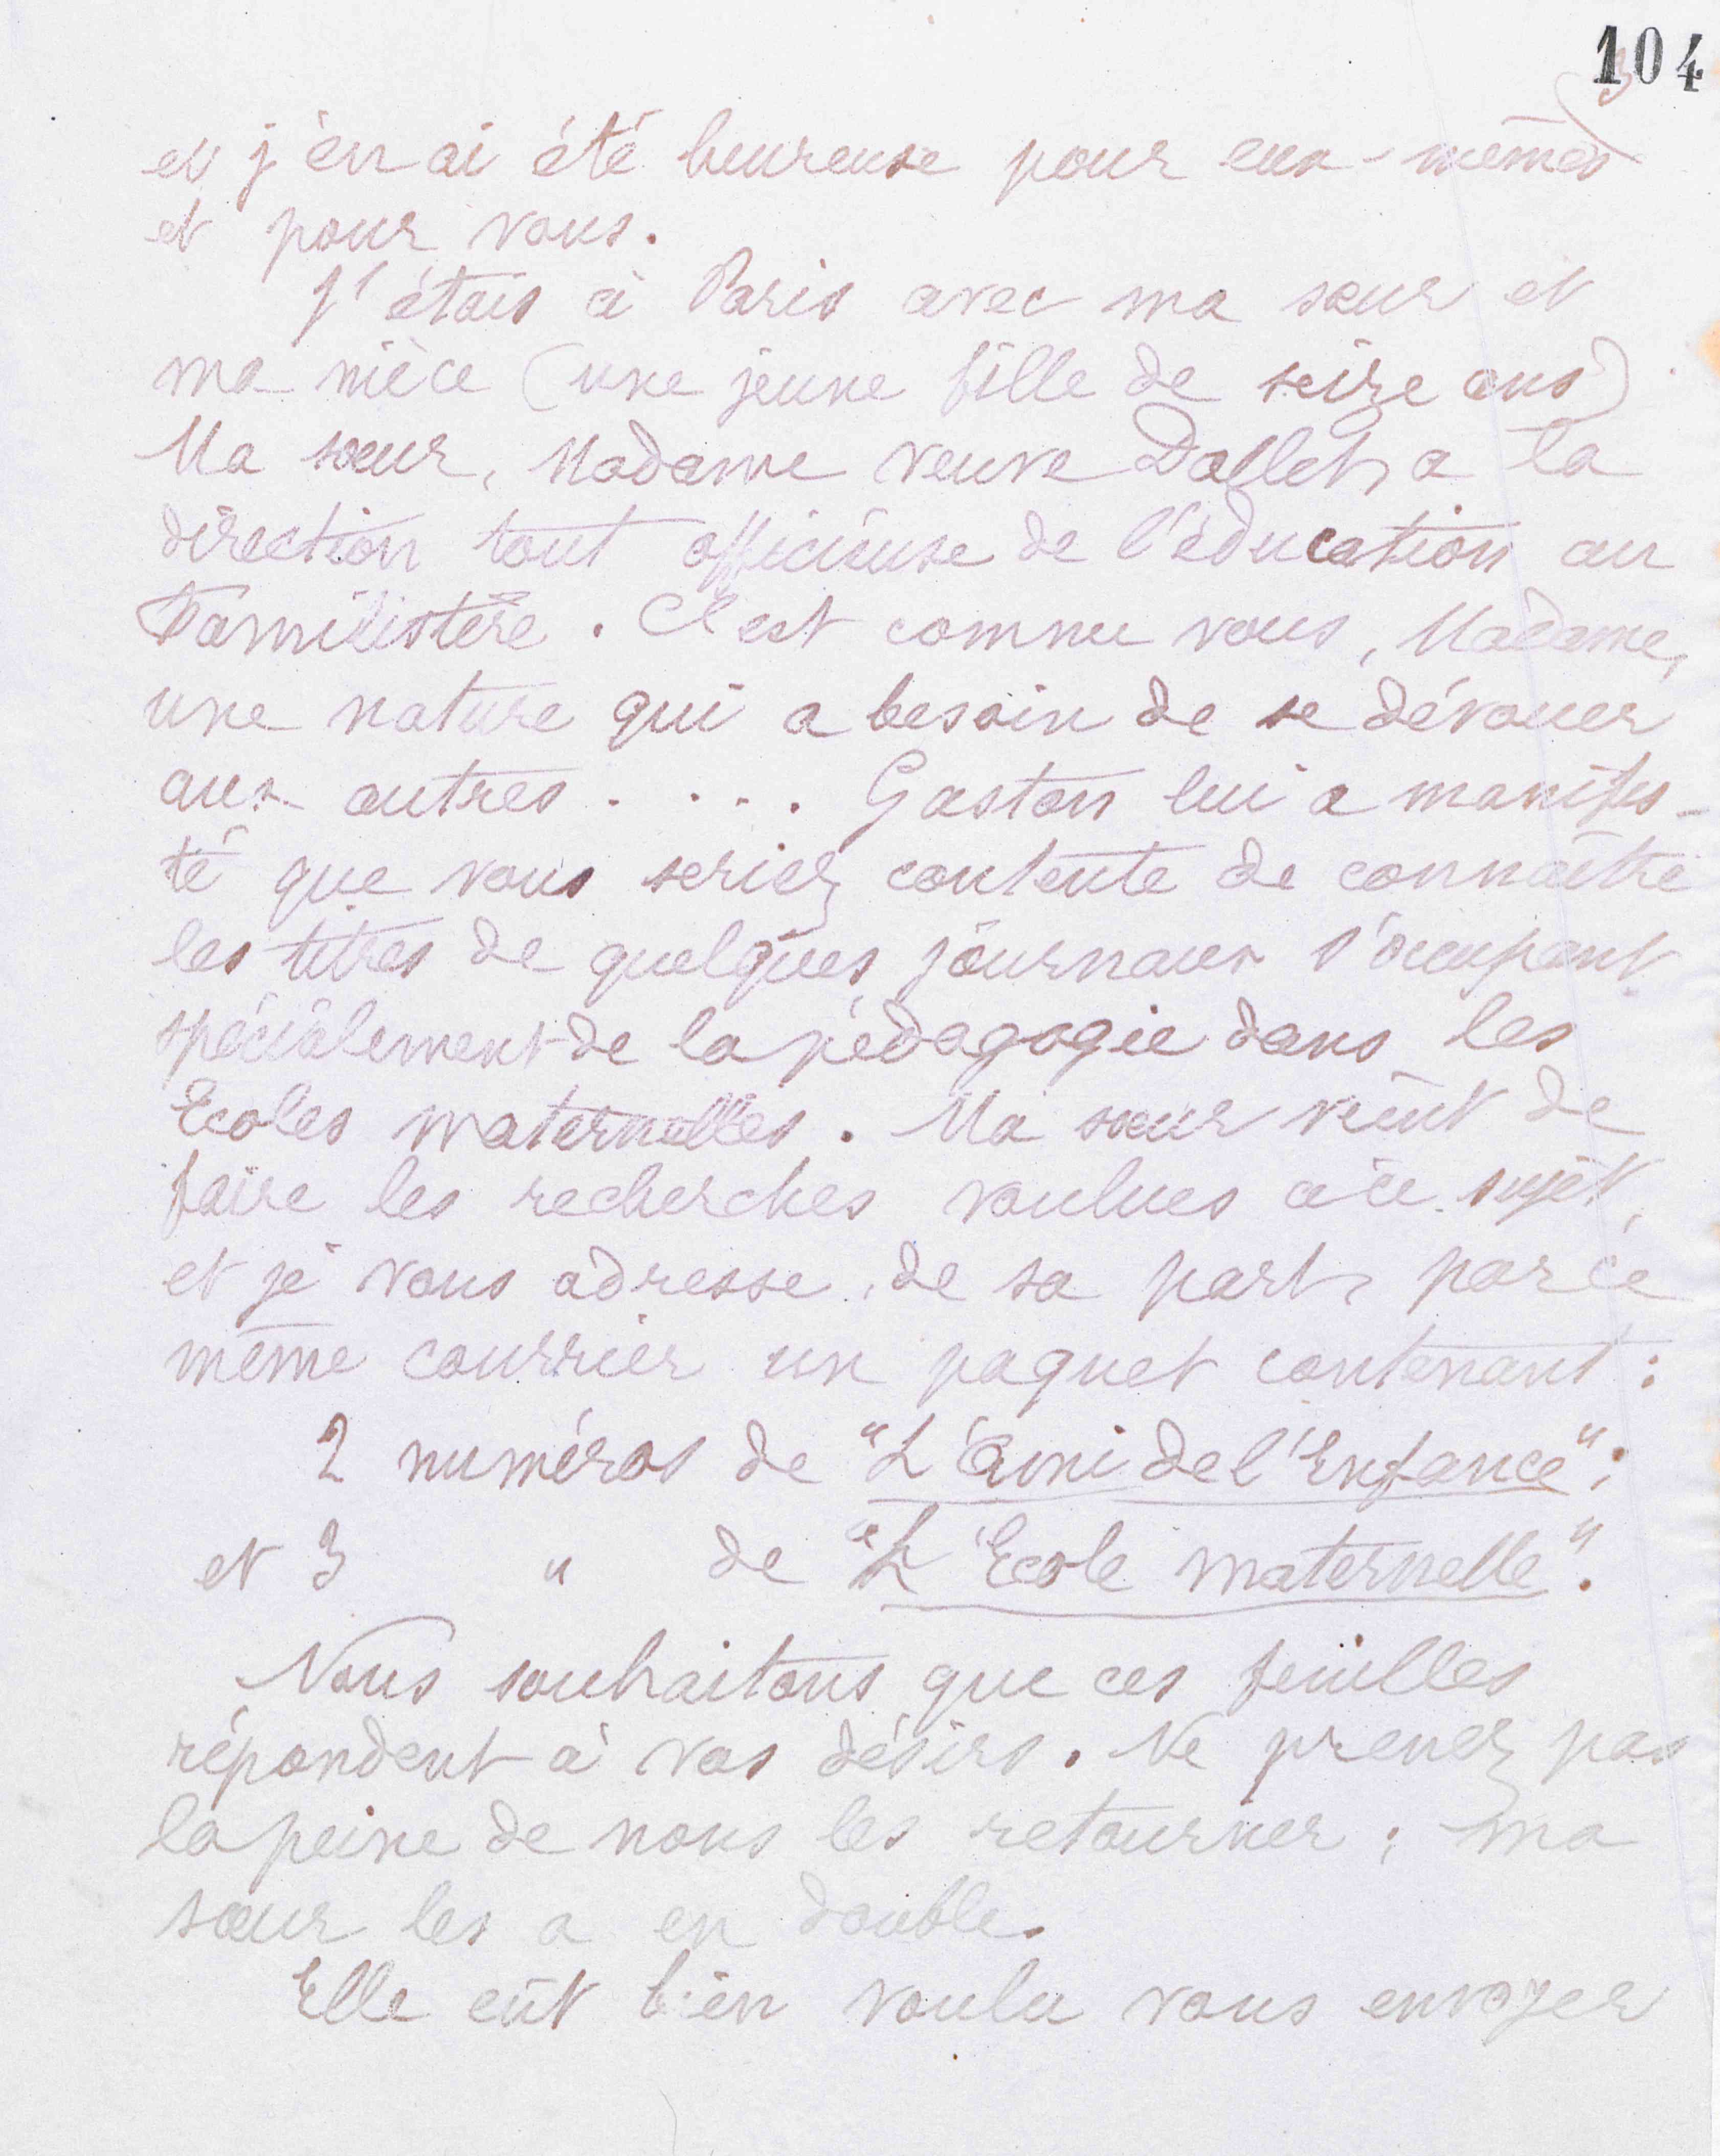 104
3
et j'en ai été heureuse pour eux-mêmes
et pour vous.
J'étais à Paris avec ma sœur et
ma nièce (une jeune fille de seize ans)
Ma sœur, Madame veuve Dallet, a la
direction tout officieuse de l'éducation au
Familistère. C'est comme vous, Madame,
une nature qui a besoin de se dévouer
aux autres.... Gaston lui a manifes-
té que vous seriez contente de connaître
les titres de quelques journaux s'occupant
spécialement de la pédagogie dans les
Ecoles maternelles. Ma sœur vient de
faire les recherches voulues à ce sujet,
et je vous adresse, de sa part, par ce
même courrier un paquet contenant :
2 numéros de "L'Ami de l'Enfance";
et 3 " de "L'Ecole maternelle".
Nous souhaitons que ces feuilles
répondent à vos désirs. Ne prenez pas
la peine de nous les retourner ; ma
sœur les a en double.
Elle eût bien voulu vous envoyer